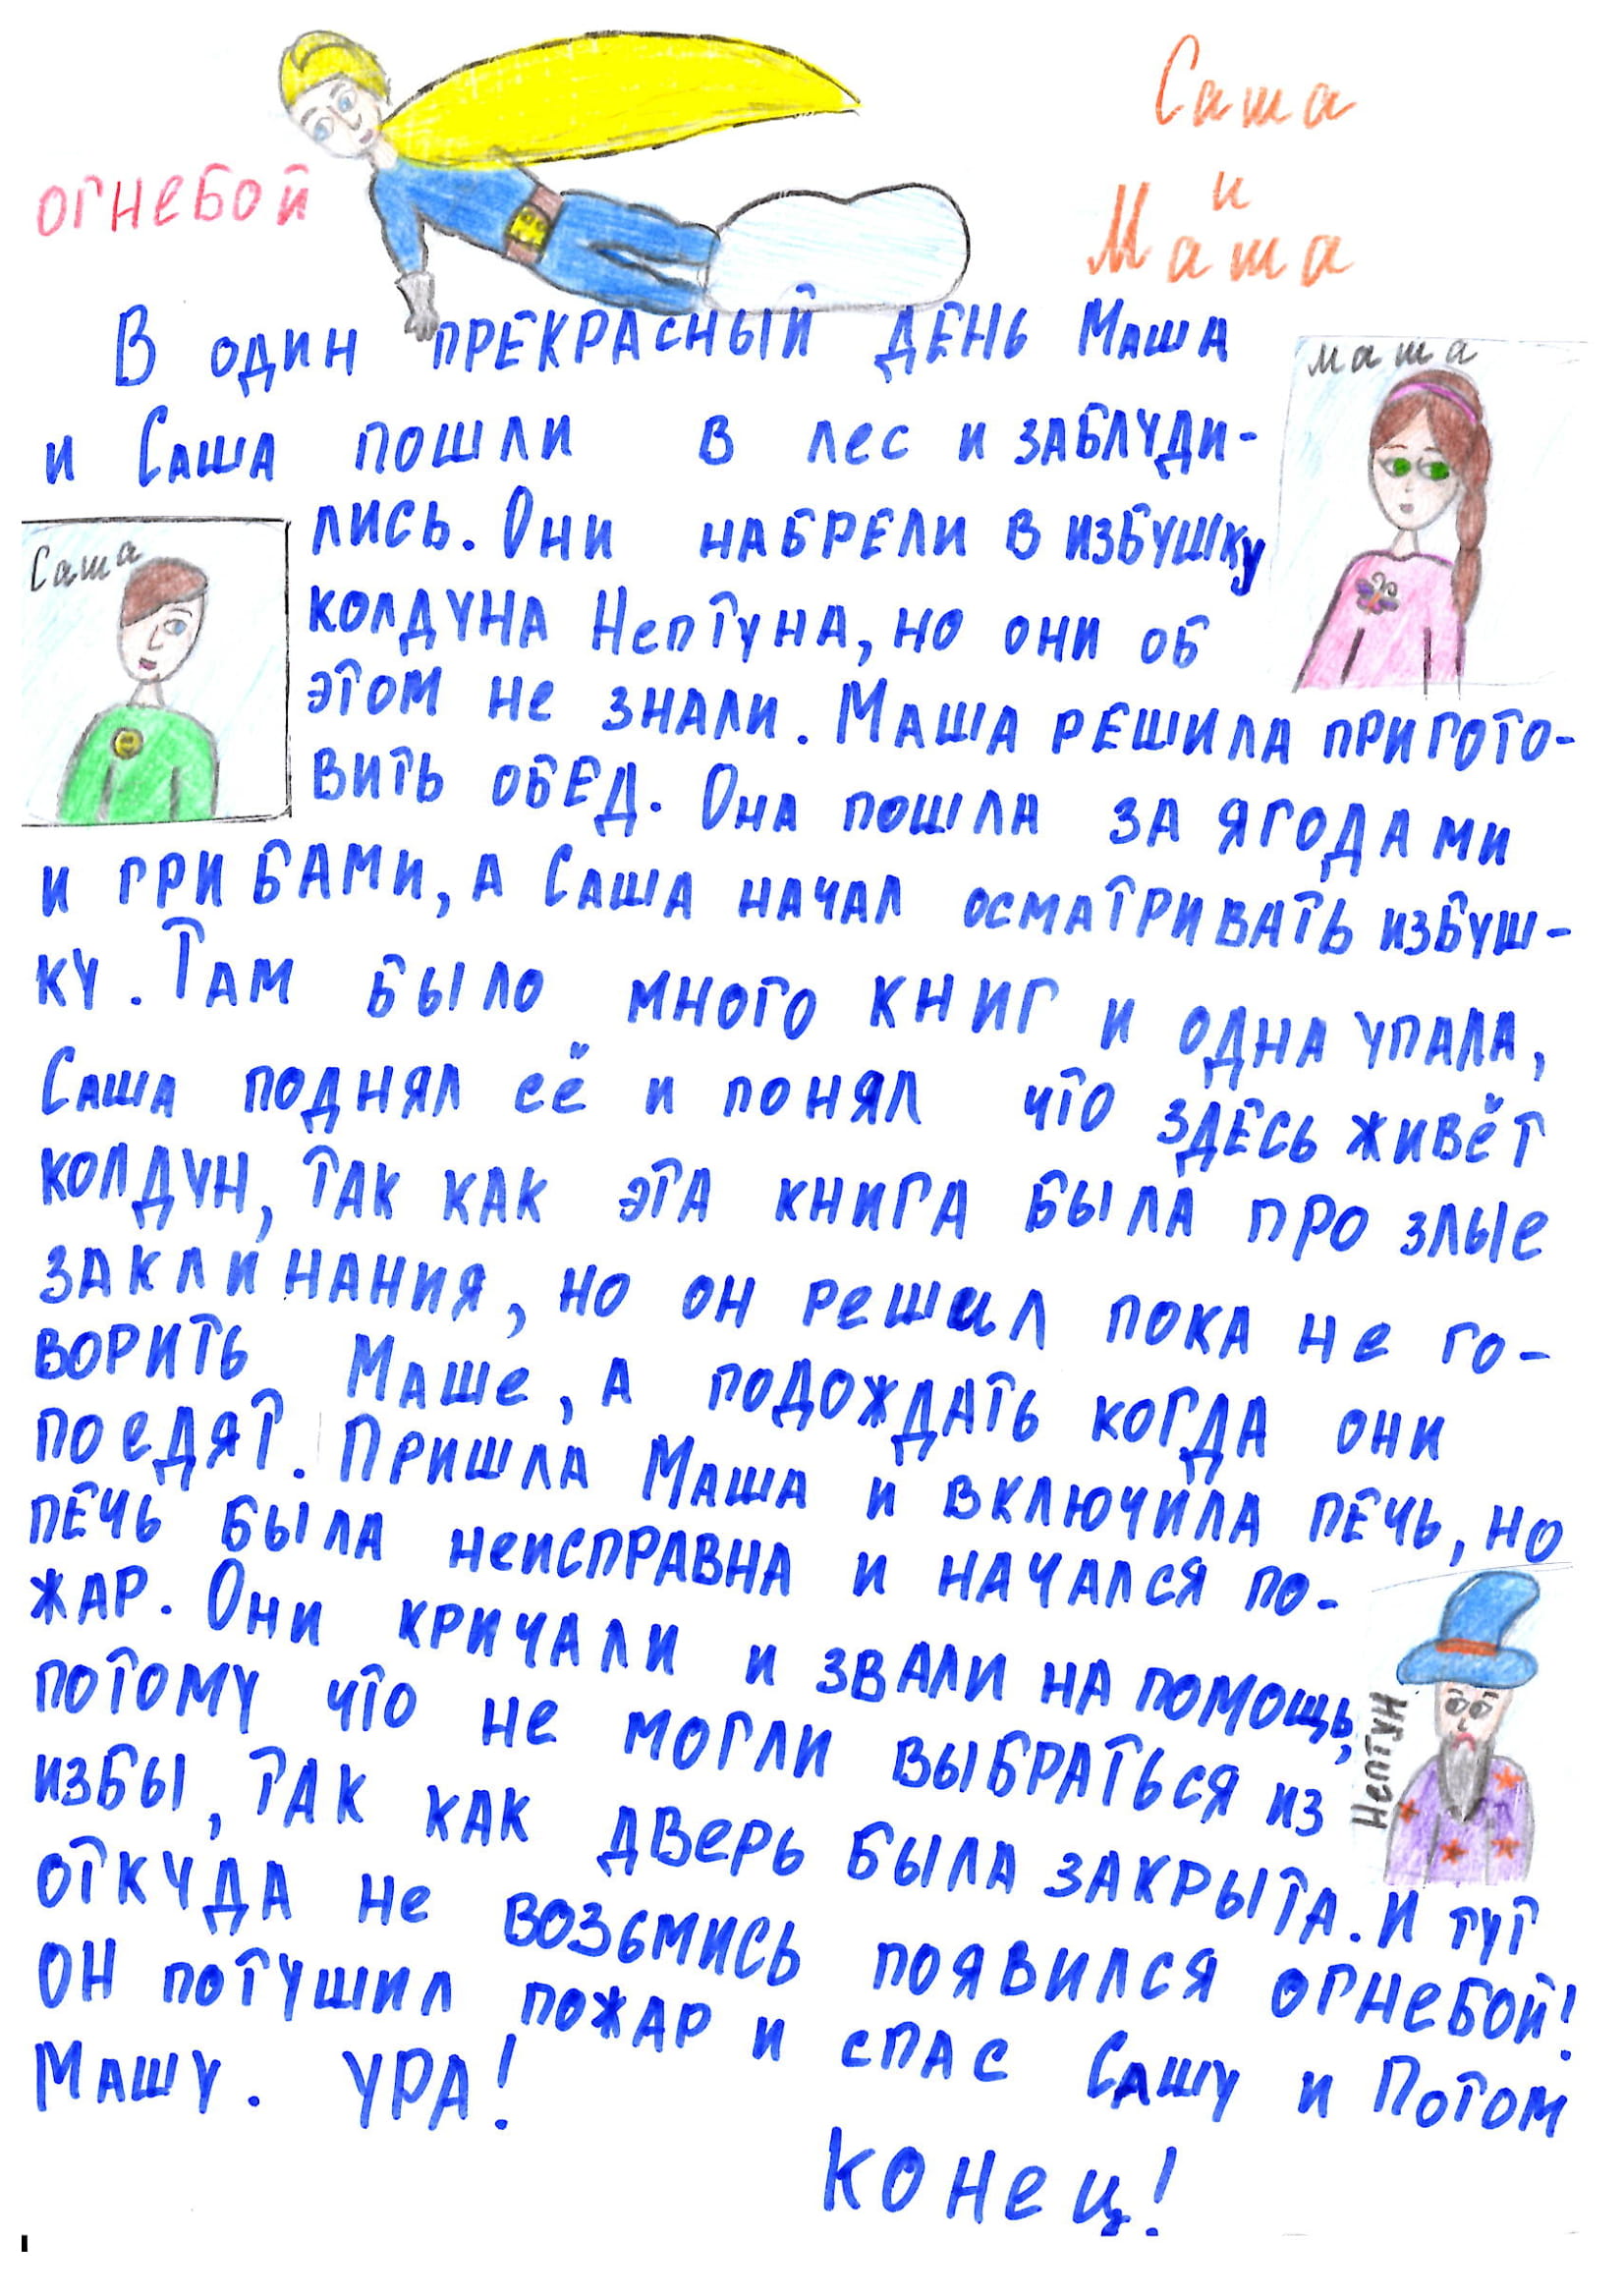 огнебой
Саша
и
Маша
В один прекрасный день Маша
маша
и Саша пошли в лес и заблуди-
лись. Они набрели в избушку
Саша
колдуна Нептуна, но они об
этом не знали. Маша решила пригото-
вить обед. Она пошла за ягодами
и грибами, а Саша начал осматривать избуш-
ку. Там было много книг и одна упала,
Саша поднял её и понял что здесь живёт
колдун, так как эта книга была про злые
заклинания, но он решил пока не го-
ворить Маше, а подождать когда они
поедят. Пришла Маша и включила печь, но
печь была неисправна и начался по-
жар. Они кричали и звали на помощь,
потому что не могли выбраться из
Нептун
избы, так как дверь была закрыта. И тут
откуда не возьмись появился огнебой!
он потушил пожар и спас Сашу и Потом
Машу. ура!
конец!